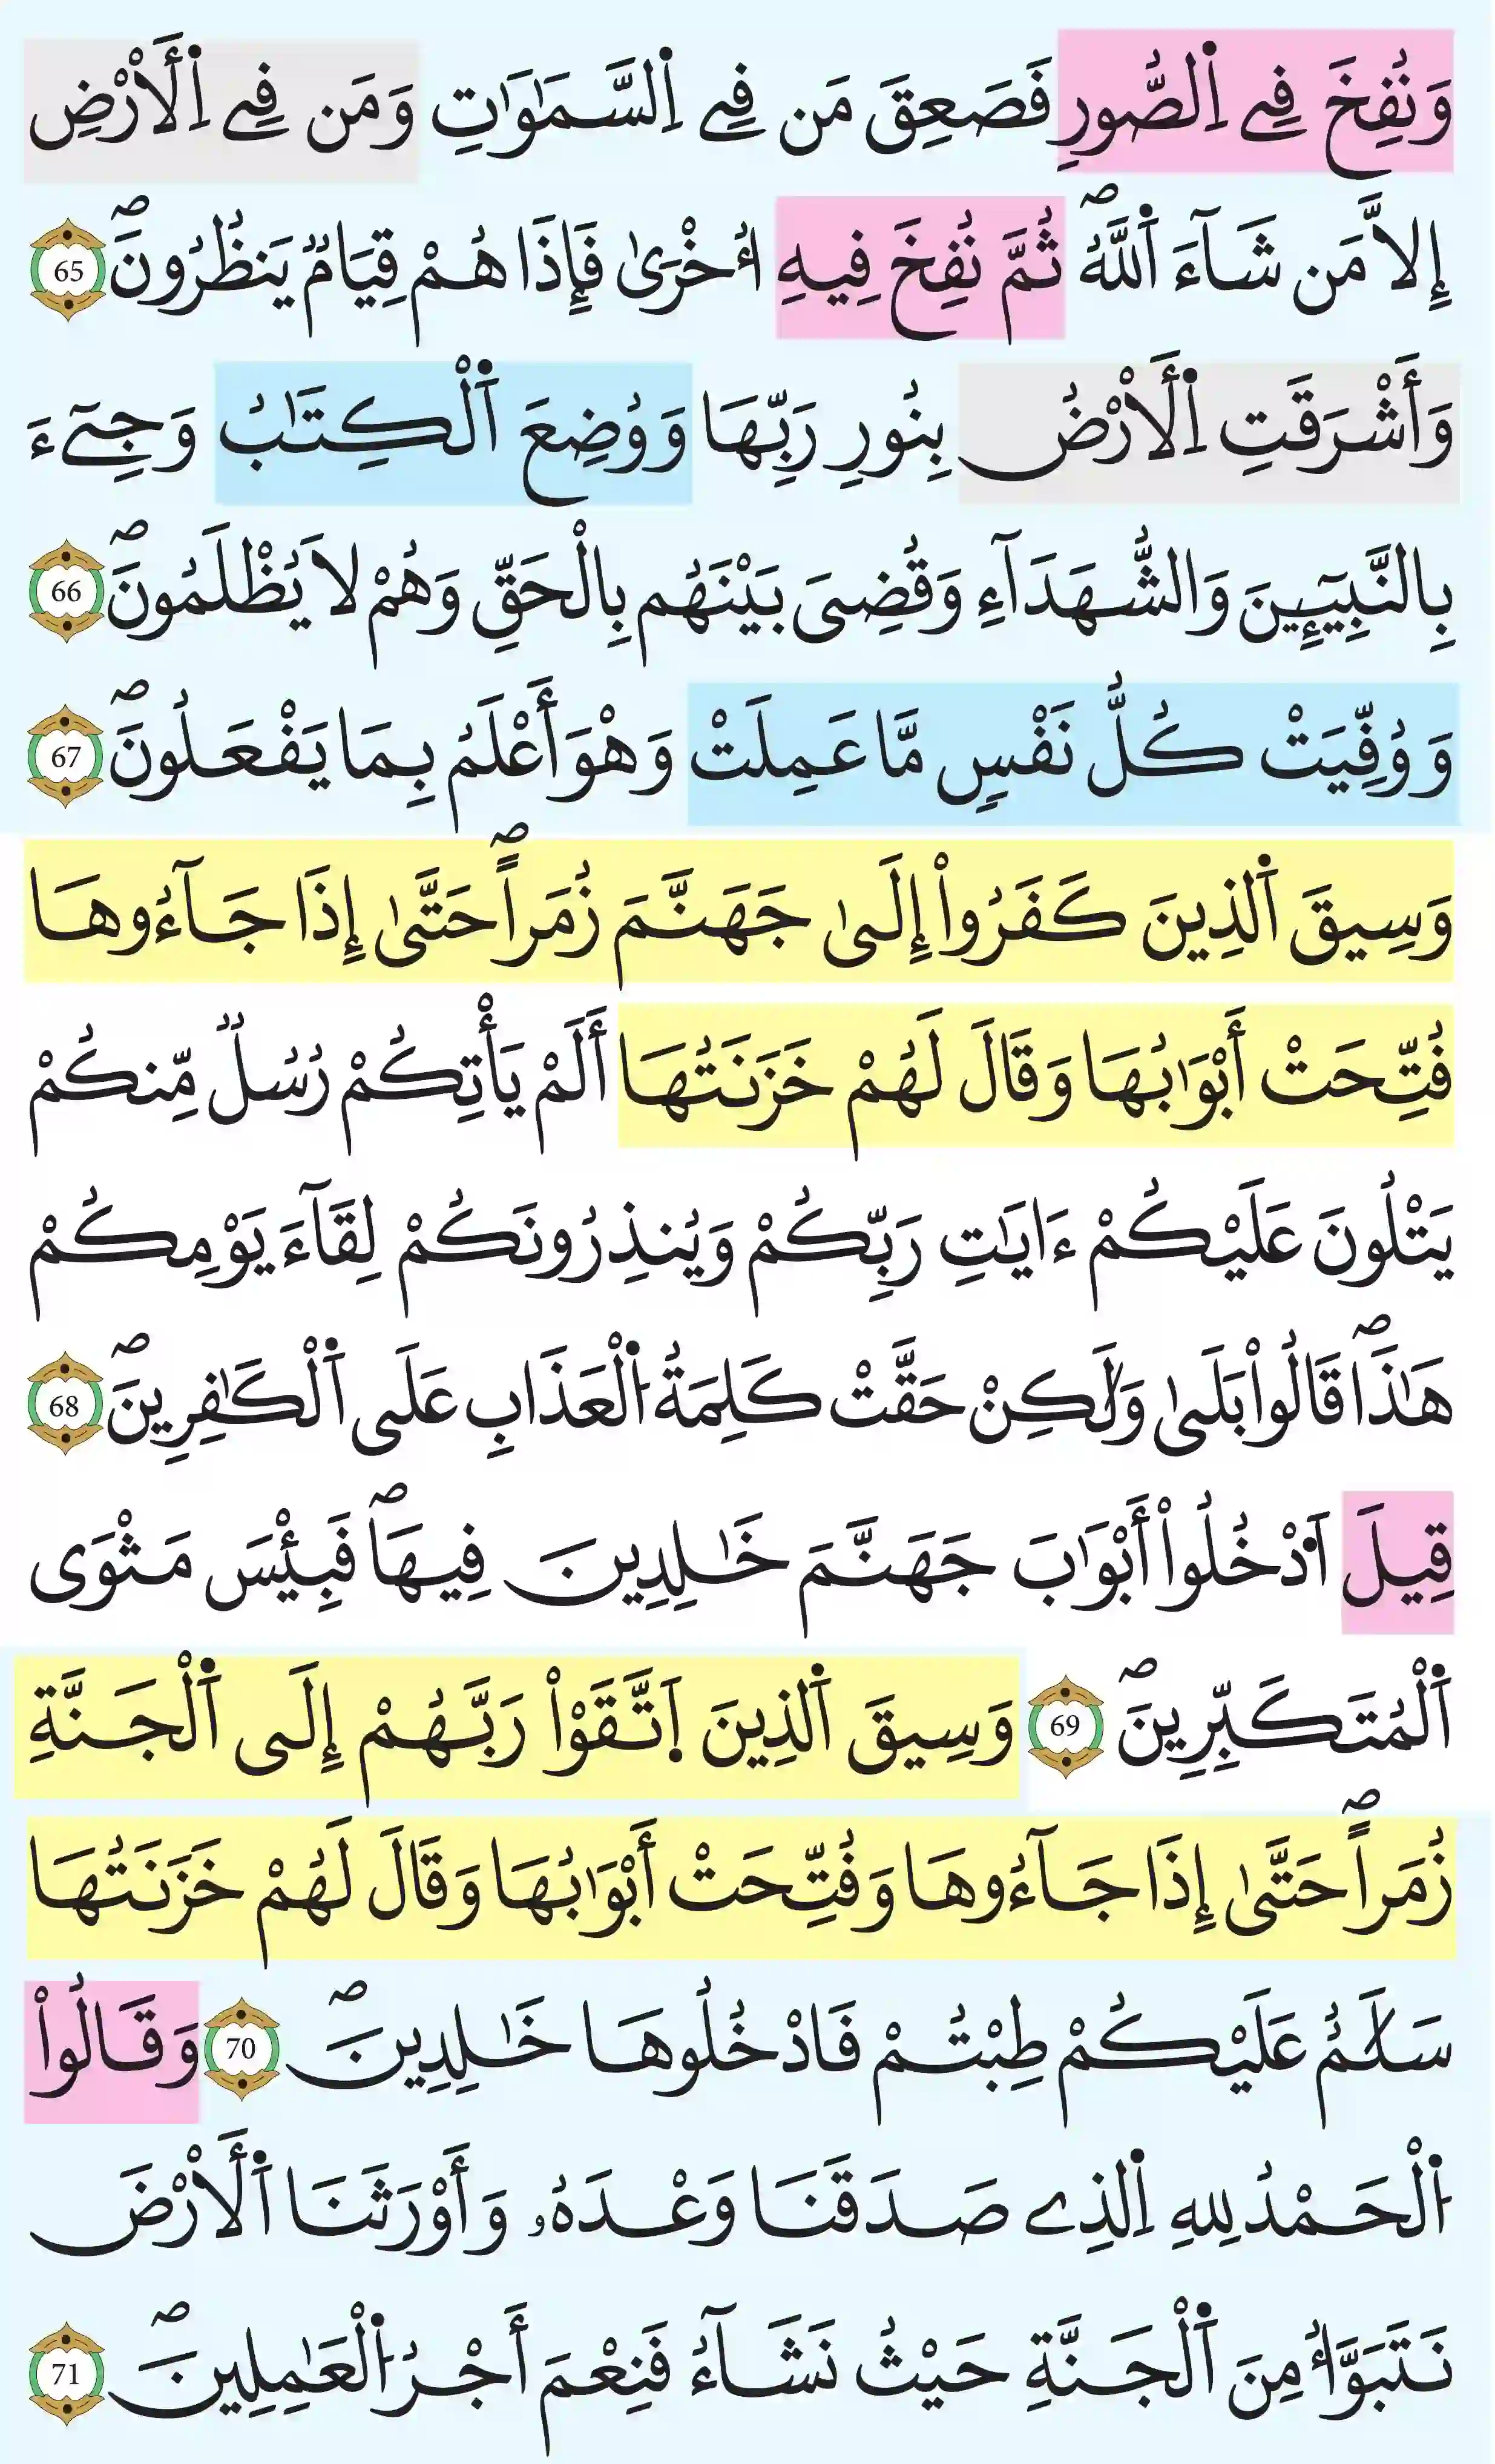 وَنُفِخَ فِے اِ۬لصُّورِ فَصَعِقَ مَن فِے اِ۬لسَّمَٰوَٰتِ وَمَن فِے اِ۬لَارْضِ
إِلَّا مَن شَآءَ اَ۬للَّهُۖ ثُمَّ نُفِخَ فِيهِ أُخْر۪ىٰ فَإِذَا هُمْ قِيَامٞ يَنظُرُونَۖ 65
وَأَشْرَقَتِ اِ۬لَارْضُ بِنُورِ رَبِّهَا وَوُضِعَ اَ۬لْكِتَٰبُ وَجِےٓءَ
بِالنَّبِيٓـِٕينَ وَالشُّهَدَآءِ وَقُضِىَ بَيْنَهُم بِالْحَقِّ وَهُمْ لَا يُظْلَمُونَۖ 66
وَوُفِّيَتْ كُلُّ نَفْسٖ مَّا عَمِلَتْ وَهْوَ أَعْلَمُ بِمَا يَفْعَلُونَۖ 67
وَسِيقَ اَ۬لذِينَ كَفَرُوٓاْ إِلَىٰ جَهَنَّمَ زُمَراًۖ حَتَّىٰٓ إِذَا جَآءُوهَا
فُتِّحَتْ أَبْوَٰبُهَا وَقَالَ لَهُمْ خَزَنَتُهَآ أَلَمْ يَأْتِكُمْ رُسُلٞ مِّنكُمْ
يَتْلُونَ عَلَيْكُمْ ءَايَٰتِ رَبِّكُمْ وَيُنذِرُونَكُمْ لِقَآءَ يَوْمِكُمْ
هَٰذَاۖ قَالُواْ بَلَىٰ وَلَٰكِنْ حَقَّتْ كَلِمَةُ اُ۬لْعَذَابِ عَلَى اَ۬لْكَٰفِرِينَۖ 68
قِيلَ اَ۟دْخُلُوٓاْ أَبْوَٰبَ جَهَنَّمَ خَٰلِدِينَ فِيهَاۖ فَبِئْسَ مَثْوَى
اَ۬لْمُتَكَبِّرِينَۖ 69 وَسِيقَ اَ۬لذِينَ اَ۪تَّقَوْاْ رَبَّهُمْ إِلَى اَ۬لْجَنَّةِ
زُمَراًۖ حَتَّىٰٓ إِذَا جَآءُوهَا وَفُتِّحَتْ أَبْوَٰبُهَا وَقَالَ لَهُمْ خَزَنَتُهَا
سَلَٰمٌ عَلَيْكُمْ طِبْتُمْ فَادْخُلُوهَا خَٰلِدِينَۖ 70 وَقَالُواْ
اُ۬لْحَمْدُ لِلهِ اِ۬لذِے صَدَقَنَا وَعْدَهُۥ وَأَوْرَثَنَا اَ۬لَارْضَ
نَتَبَوَّأُ مِنَ اَ۬لْجَنَّةِ حَيْثُ نَشَآءُ فَنِعْمَ أَجْرُ اُ۬لْعَٰمِلِينَۖ 71